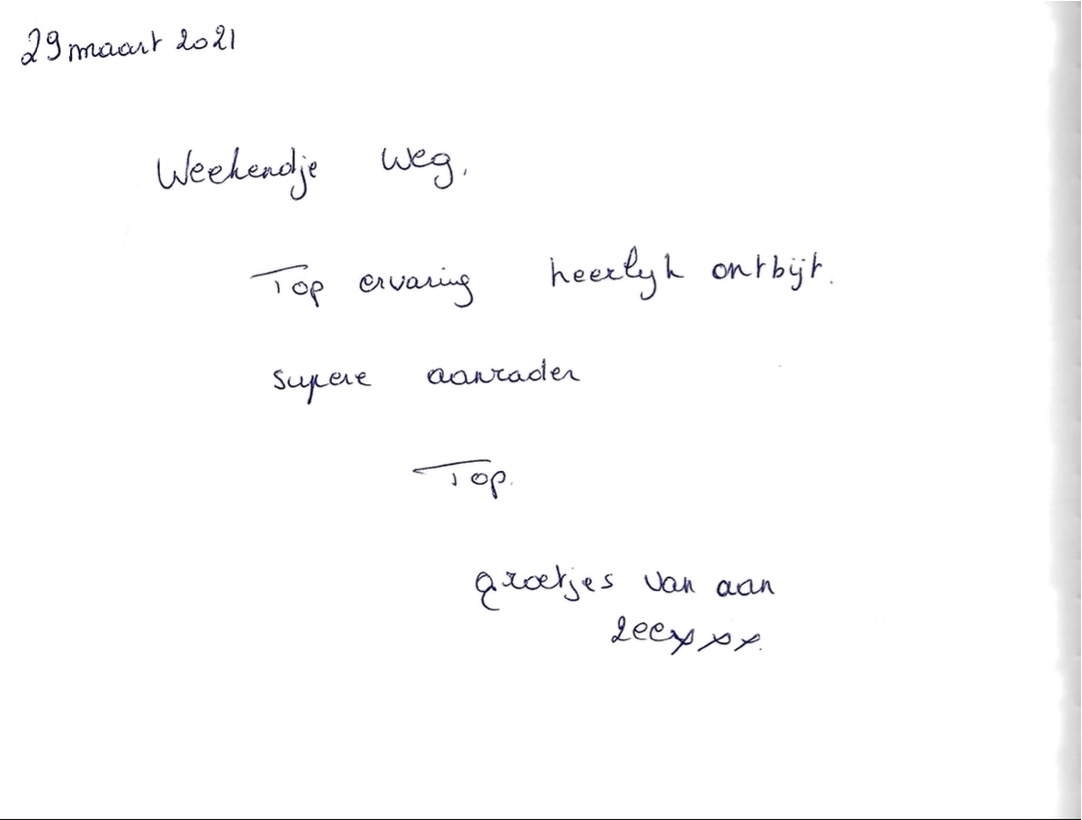 29 maart 2021
Weekendje weg,
Top ervaring heerlyk ontbijt.
supere aanrader
Top.
groetjes van aan
zee xxx.